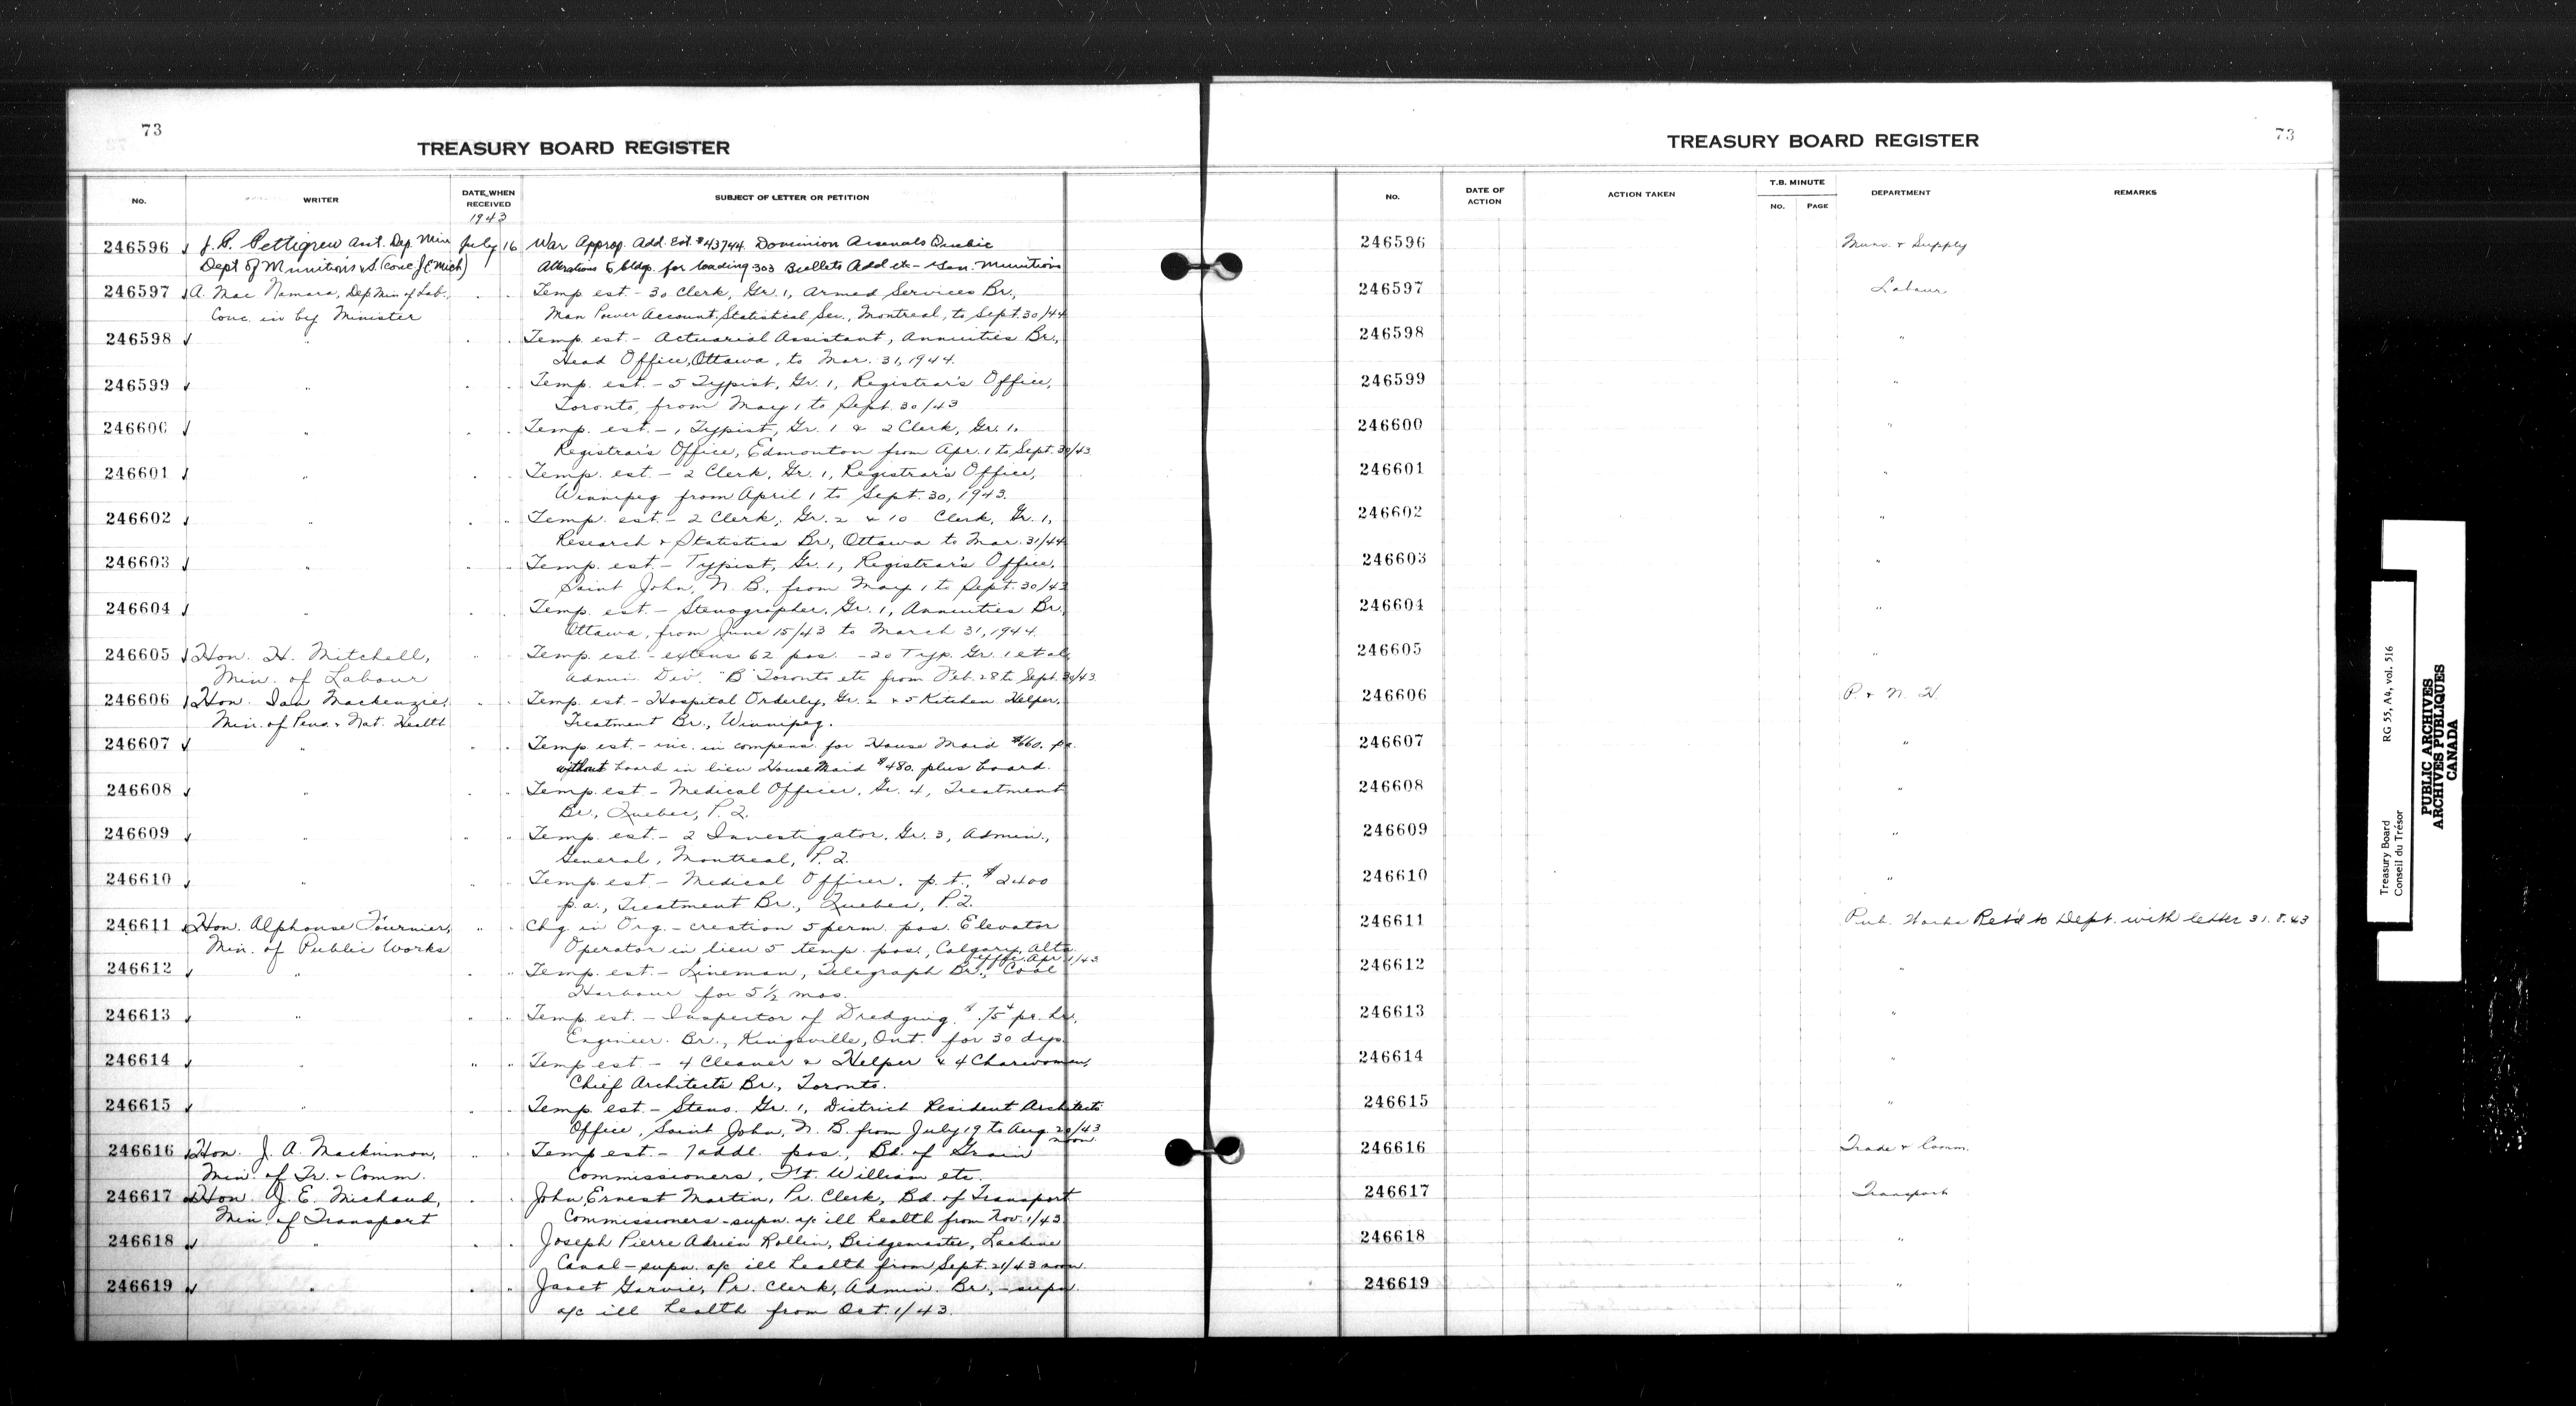 73
TREASURY BOARD REGISTER
No. WRITER DATE WHEN RECEIVED SUBJECT OF LETTER OR PETITION
1943
246596 J. G. Pettigrew Asst. Dep. Min July 16 War Approp. Add. Est. #43744. Dominion Arsenals Quebec
Dept of Munitions & S. Alterations to bldgs. for loading 303 Bullets Add etc - Gen. Munitions
246597 A. Mac Namara, Dep Min of Lab., " " Temp. est. - 30 Clerk, Gr. 1, Armed Services Br.,
Conc. in by Minister Man Power Account. Statistical Sec., Montreal, to Sept. 30/44
246598 " " " Temp. est. - Actuarial Assistant, Annuities Br.,
Head Office, Ottawa, to Mar. 31, 1944.
246599 " " " Temp. est. - 5 Typist, Gr. 1, Registrar's Office,
Toronto, from May 1 to Sept. 30/43
246600 " " " Temp. est. - 1 Typist, Gr. 1 & 2 Clerk, Gr. 1,
Registrar's Office, Edmonton from Apr. 1 to Sept. 30/43
246601 " " " Temp. est. - 2 Clerk, Gr. 1, Registrar's Office,
Winnipeg from April 1 to Sept. 30, 1943.
246602 " " " Temp. est. - 2 Clerk, Gr. 2 & 10 Clerk, Gr. 1,
Research & Statistics Br., Ottawa to Mar. 31/44
246603 " " " Temp. est. - Typist, Gr. 1, Registrar's Office,
Saint John, N. B., from May 1 to Sept. 30/43
246604 " " " Temp. est. - Stenographer, Gr. 1, Annuities Br.,
Ottawa, from June 15/43 to March 31, 1944.
246605 Hon. H. Mitchell, " " Temp. est. - extens 62 pos. - 20 Typ. Gr. 1 et al,
Min. of Labour Admin. Div. "B" Toronto etc from Feb. 28 to Sept. 30/43
246606 Hon. Ian Mackenzie, " " Temp. est. - Hospital Orderly, Gr. 2 & 5 Kitchen Helper,
Min. of Pens. & Nat. Health Treatment Br., Winnipeg.
246607 " " " Temp. est. - inc. in compens. for House Maid $660. pa.
without board in lieu House Maid $480. plus board.
246608 " " " Temp. est - Medical Officer, Gr. 4, Treatment
Br., Quebec, P. Q.
246609 " " " Temp. est. - 2 Investigator, Gr. 3, Admin.,
General, Montreal, P. Q.
246610 " " " Temp. est. - Medical Officer, p. t., $2400
p.a., Treatment Br., Quebec, P. Q.
246611 Hon. Alphonse Fournier, " " Chg. in Org. - creation 5 perm. pos. Elevator
Min. of Public Works Operator in lieu 5 temp. pos., Calgary, Alta.
effe. Apr. 1/43
246612 " " " Temp. est. - Lineman, Telegraph Br., Coal
Harbour for 5½ mos.
246613 " " " Temp. est. - Inspector of Dredging, $.75 pr. hr.,
Engineer. Br., Kingsville, Ont. for 30 dys.
246614 " " " Temp. est - 4 Cleaner & Helper & 4 Charwoman,
Chief Architects Br., Toronto.
246615 " " " Temp. est. - Steno. Gr. 1, District Resident Architects
Office, Saint John, N. B. from July 19 to Aug. 20/43
noon.
246616 Hon. J. A. Mackinnon, " " Temp. est - 7 addl. pos., Bd. of Grain
Min. of Tr. & Comm. Commissioners, Ft. William etc.
246617 Hon. J. E. Michaud, " " John Ernest Martin, Pr. Clerk, Bd. of Transport
Min. of Transport Commissioners - supn. a/c ill health from Nov. 1/43.
246618 " " " Joseph Pierre Adrien Rollin, Bridgemaster, Lachine
Canal - supn. a/c ill health from Sept. 21/43 noon.
246619 " " " Janet Garvie, Pr. Clerk, Admin. Br., - supn.
a/c ill health from Oct. 1/43.
TREASURY BOARD REGISTER
73
No. DATE OF ACTION ACTION TAKEN T.B. MINUTE No. PAGE DEPARTMENT REMARKS
246596 Muns. & Supply
246597 Labour
246598 "
246599 "
246600 "
246601 "
246602 "
246603 "
246604 "
246605 "
246606 P. & N. H.
246607 "
246608 "
246609 "
246610 "
246611 Pub. Works Ret'd to Dept. with letter 31.8.43
246612 "
246613 "
246614 "
246615 "
246616 Trade & Comm.
246617 Transport
246618 "
246619 "
Treasury Board RG 55, A4, vol. 516
Conseil du Trésor
PUBLIC ARCHIVES
ARCHIVES PUBLIQUES
CANADA